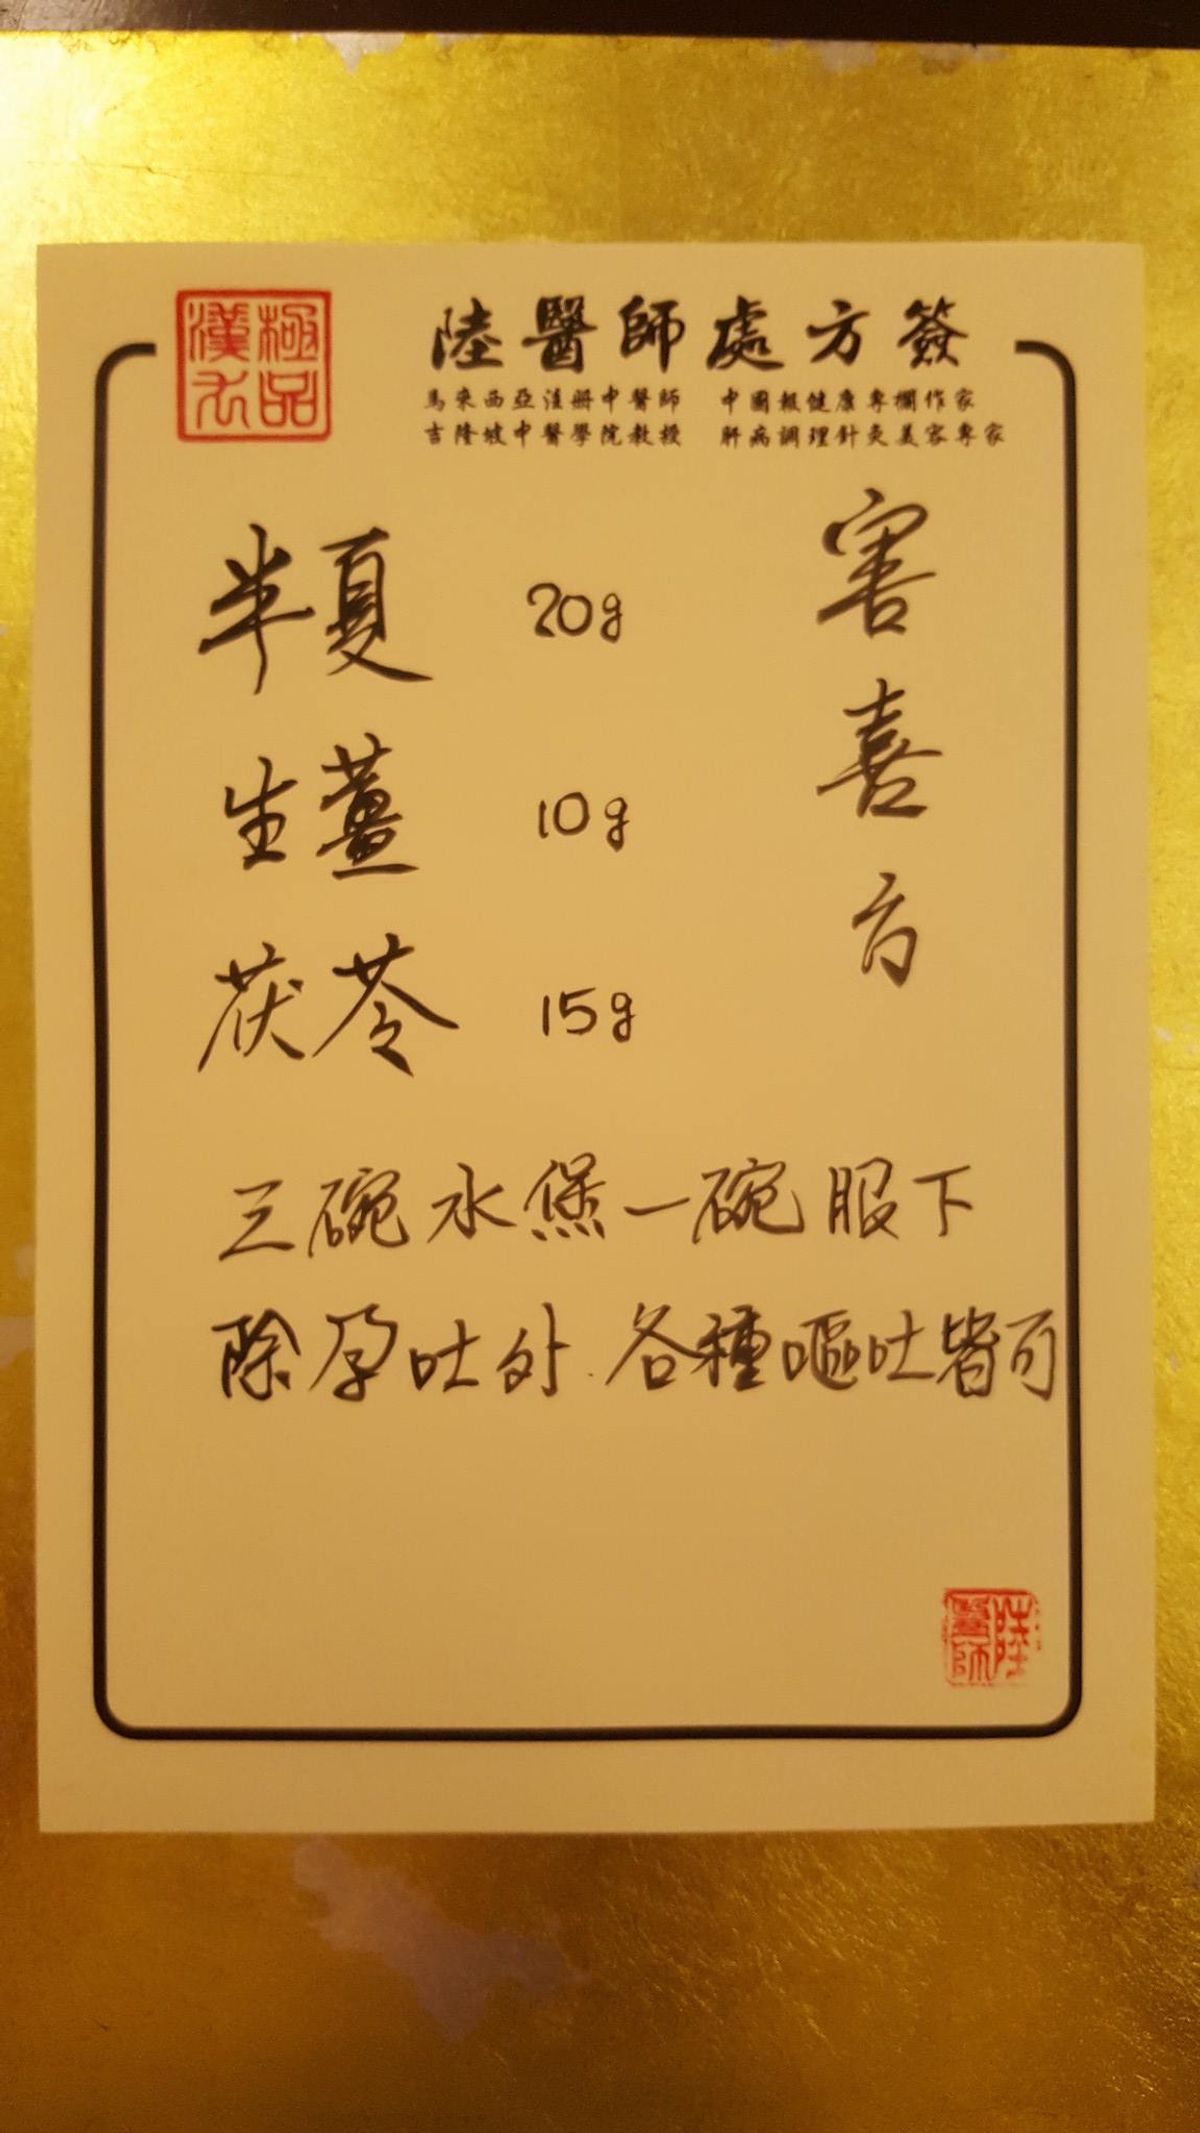 極品
漢方
陸醫師處方簽
馬來西亞注册中醫師 中國報健康專欄作家
吉隆坡中醫學院教授 肝病調理針灸美容專家
害喜方
半夏 20g
生薑 10g
茯苓 15g
三碗水煲一碗服下
除孕吐外.各種嘔吐皆可
陸醫師